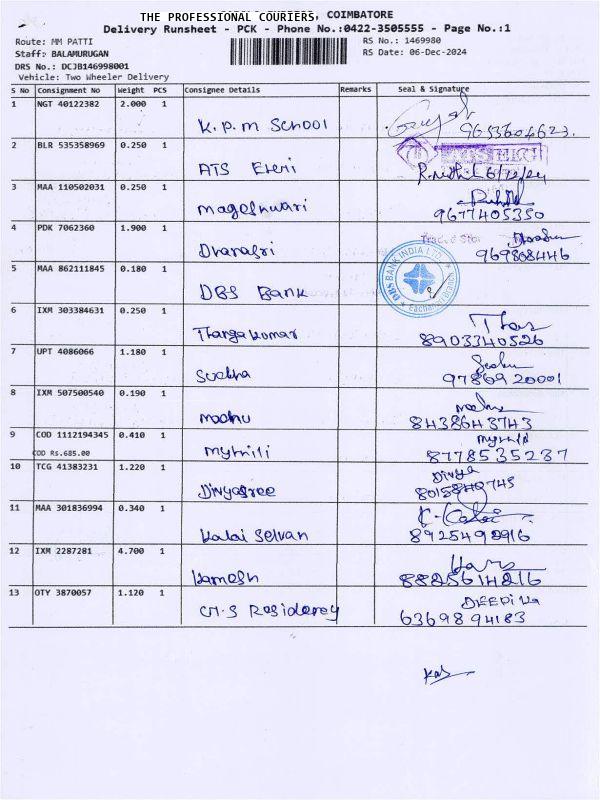 THE PROFESSIONAL COURIERS, COIMBATORE
Delivery Runsheet - PCK - Phone No.:0422-3505555 - Page No.:1
Route: MM PATTI
RS No.: 1469980
Staff: BALAMURUGAN
RS Date: 06-Dec-2024
DRS No.: DCJB146998001
Vehicle: Two Wheeler Delivery
S No Consignment No Weight PCS Consignee Details Remarks Seal & Signature
1 NGT 40122382 2.000 1 K.P.M School
9653604623.
2 BLR 535358969 0.250 1 ATS
3 MAA 110502031 0.250 1 Mageshwari
9677405350
4 PDK 7062360 1.900 1 Dharasri
969808446
5 MAA 862111845 0.180 1 DBS Bank
DBS BANK INDIA LTD.
6 IXM 303384631 0.250 1 Thangakumar
8903340526
7 UPT 4086066 1.180 1 Sudha
9786920001
8 IXM 507500540 0.190 1 madhu
8438643743
9 COD 1112194345 0.410 1 mythili
COD Rs.685.00
8778535237
10 TCG 41383231 1.220 1 Divyasree
Divya
11 MAA 301836994 0.340 1 Kalai Selvan
8925492916
12 IXM 2287281 4.700 1 Kamesh
8825614216
13 OTY 3870057 1.120 1
DEEPIKA
6369894183